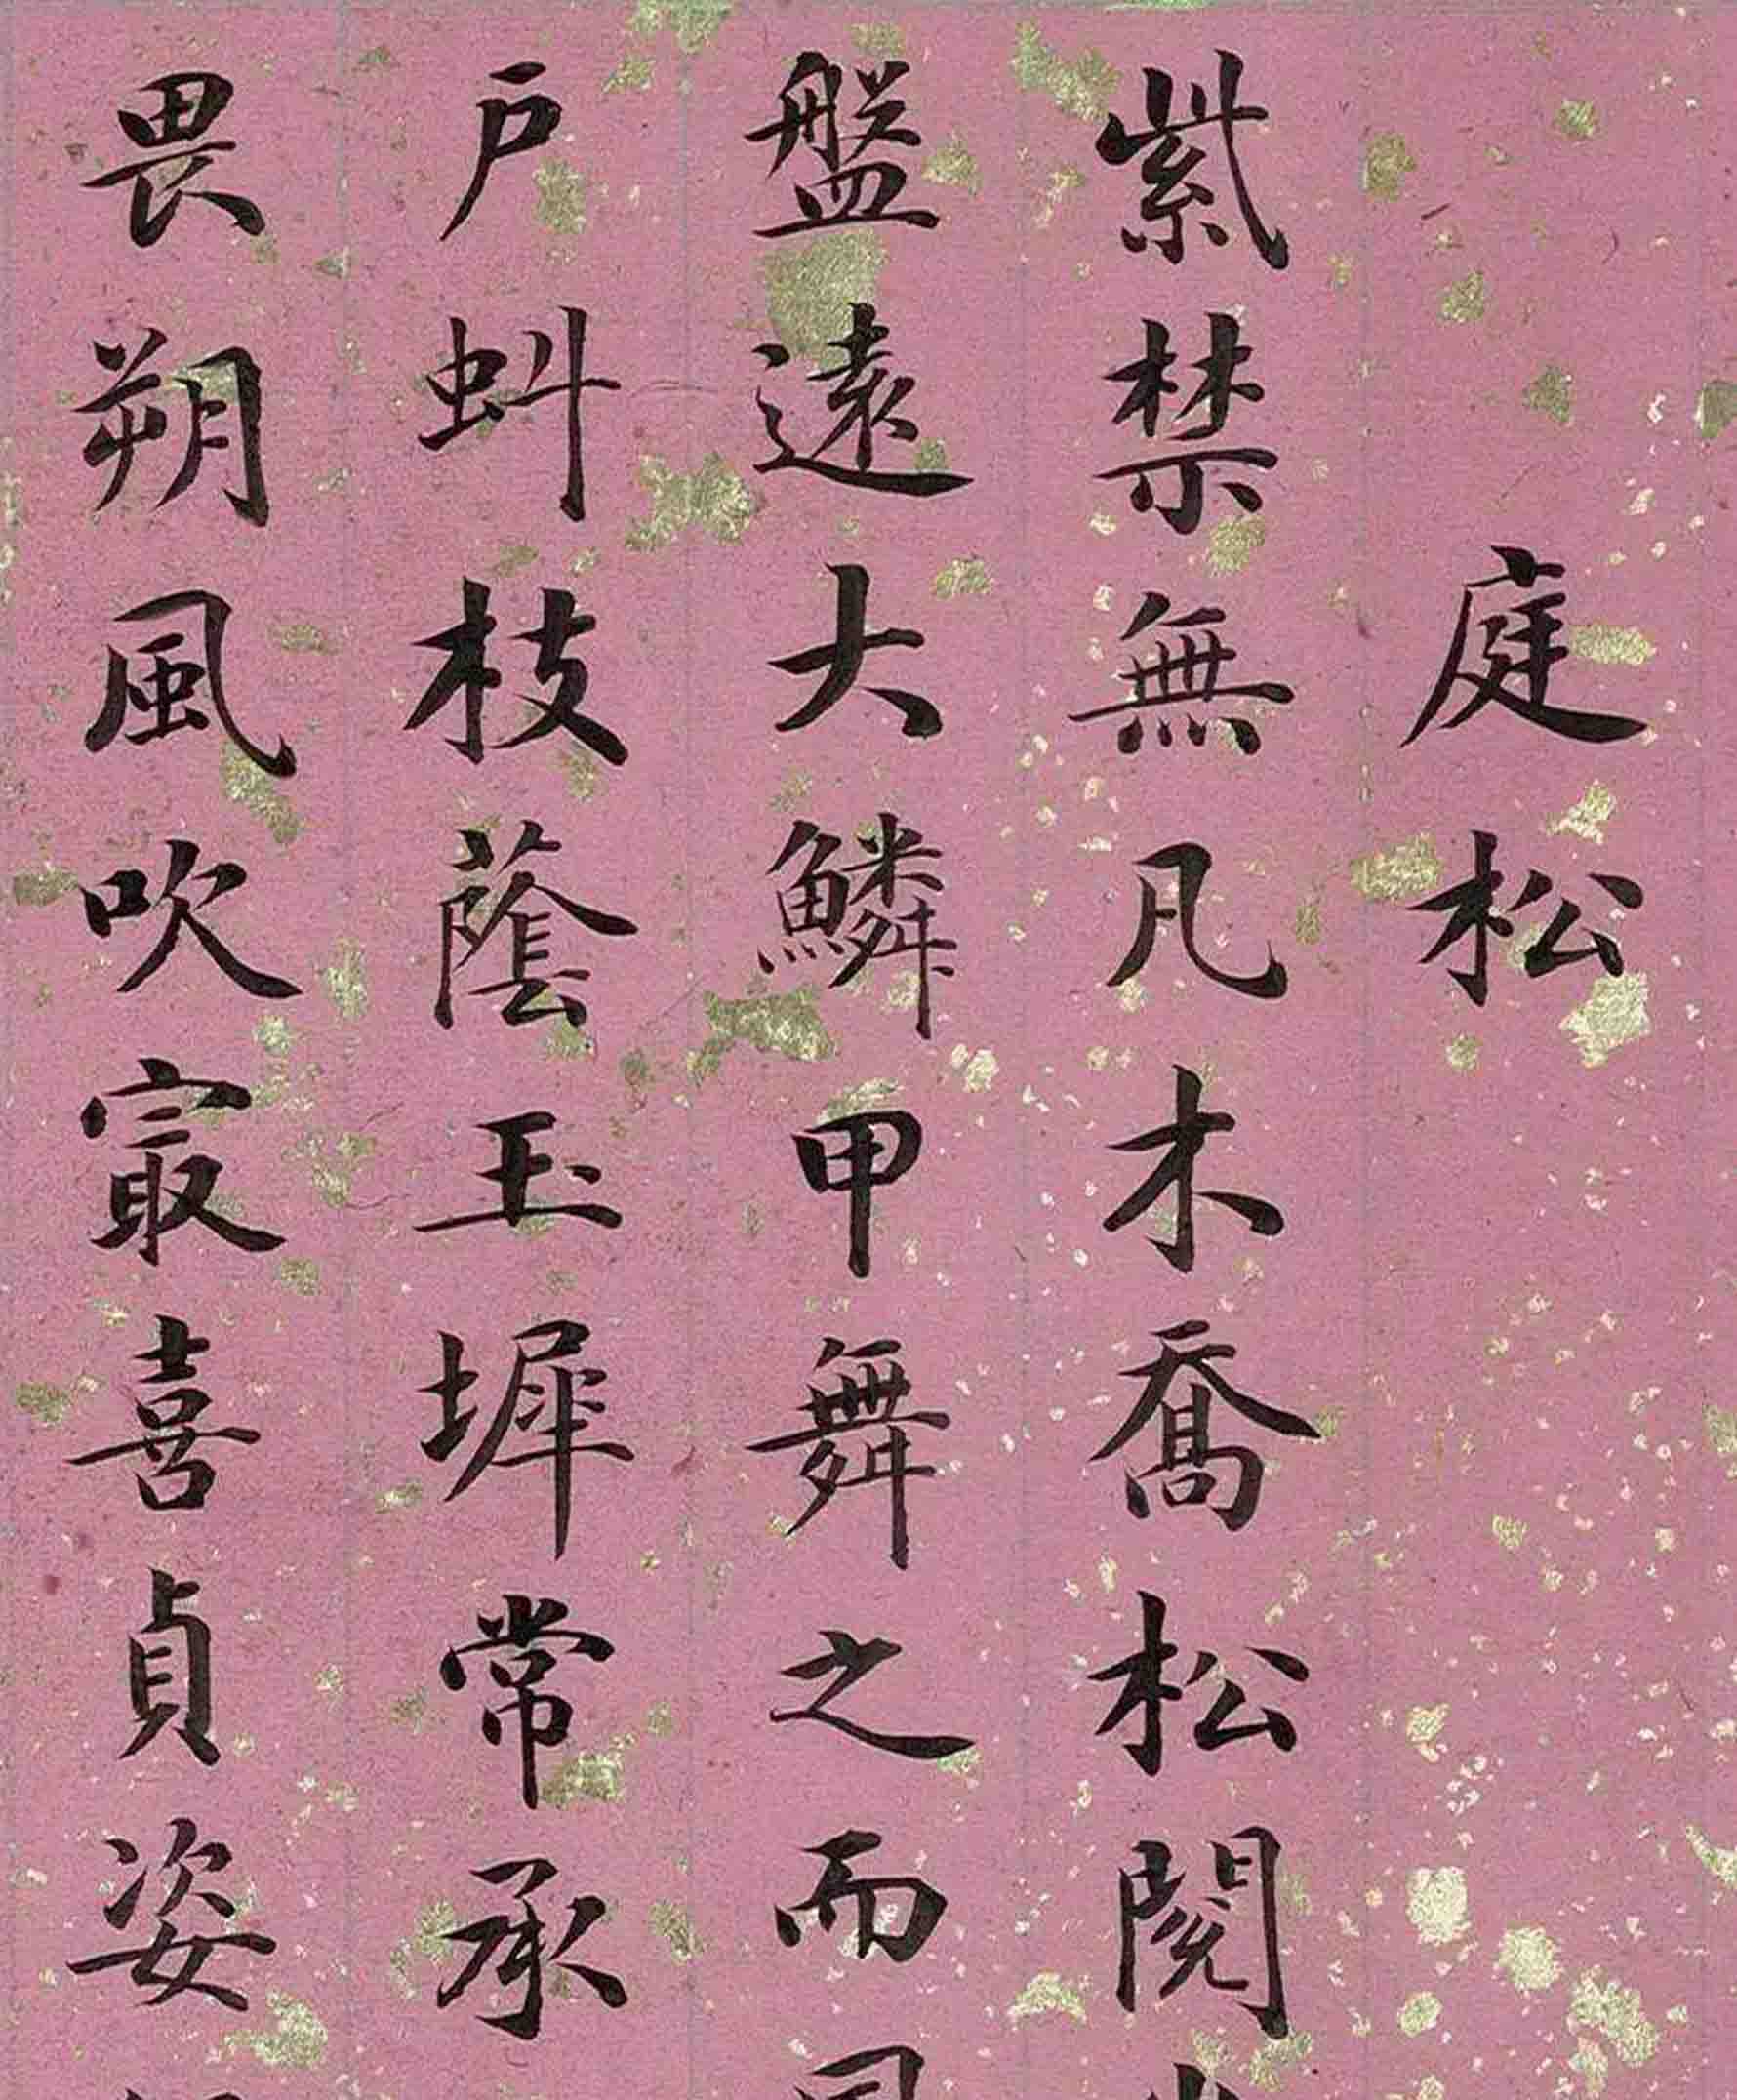 庭松
紫禁無凡木喬松閱
盤遠大鱗甲舞之而
戶蚪枝蔭玉墀常承
畏朔風吹冣喜貞姿